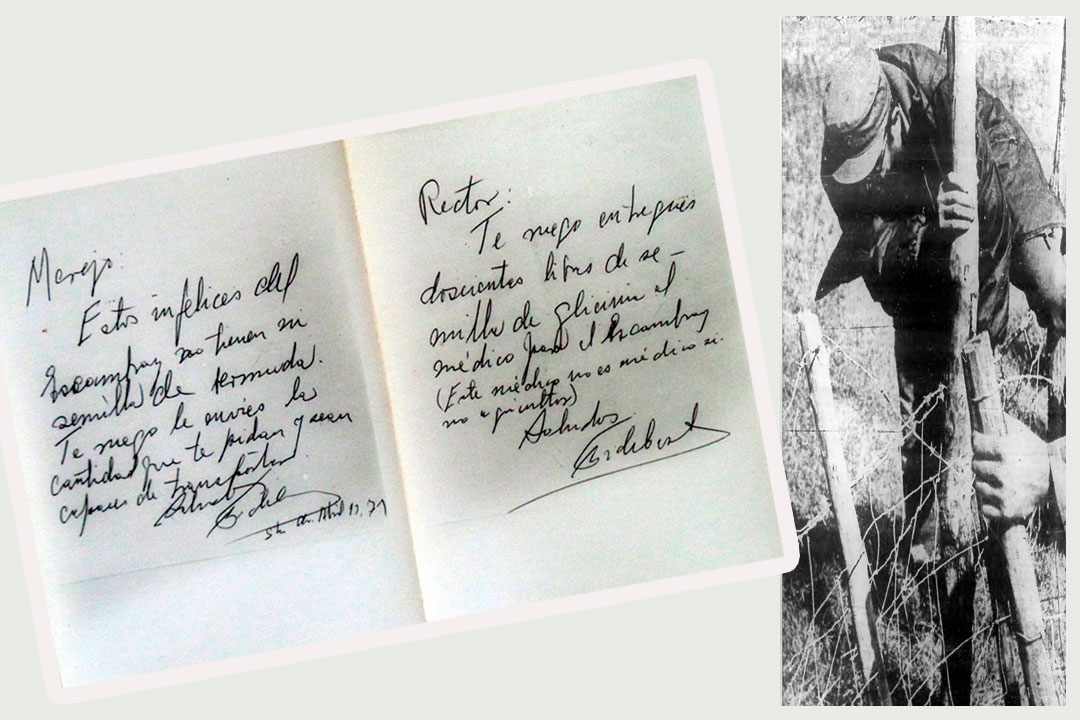 Menejo:
Estos infelices del
Escambray no tienen ni
semilla de bermuda.
Te ruego le envíes la
cantidad que te pidan y sean
capaces de transportar
Fidel
Abril 13, 71
Rector:
Te ruego entregues
doscientas libras de se-
milla de glicinia al
médico para el Escambray
(Este médico no es médico si-
no agricultor)
Saludos